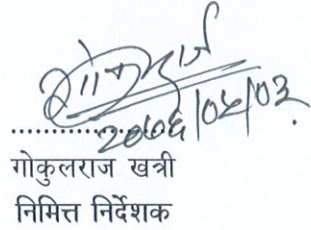 २०७६/०५/०३
गोकुलराज खत्री
निमित्त निर्देशक